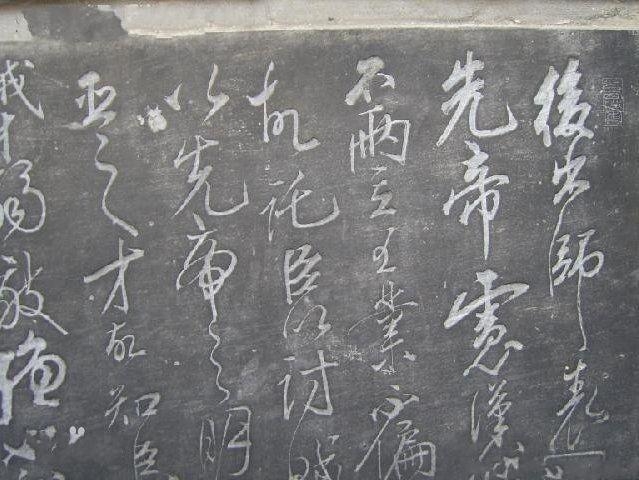 後出師表
先帝慮漢賊
不兩立王業不偏
故託臣以討賊
以先帝之明
臣之才故知臣
賊才弱敵強